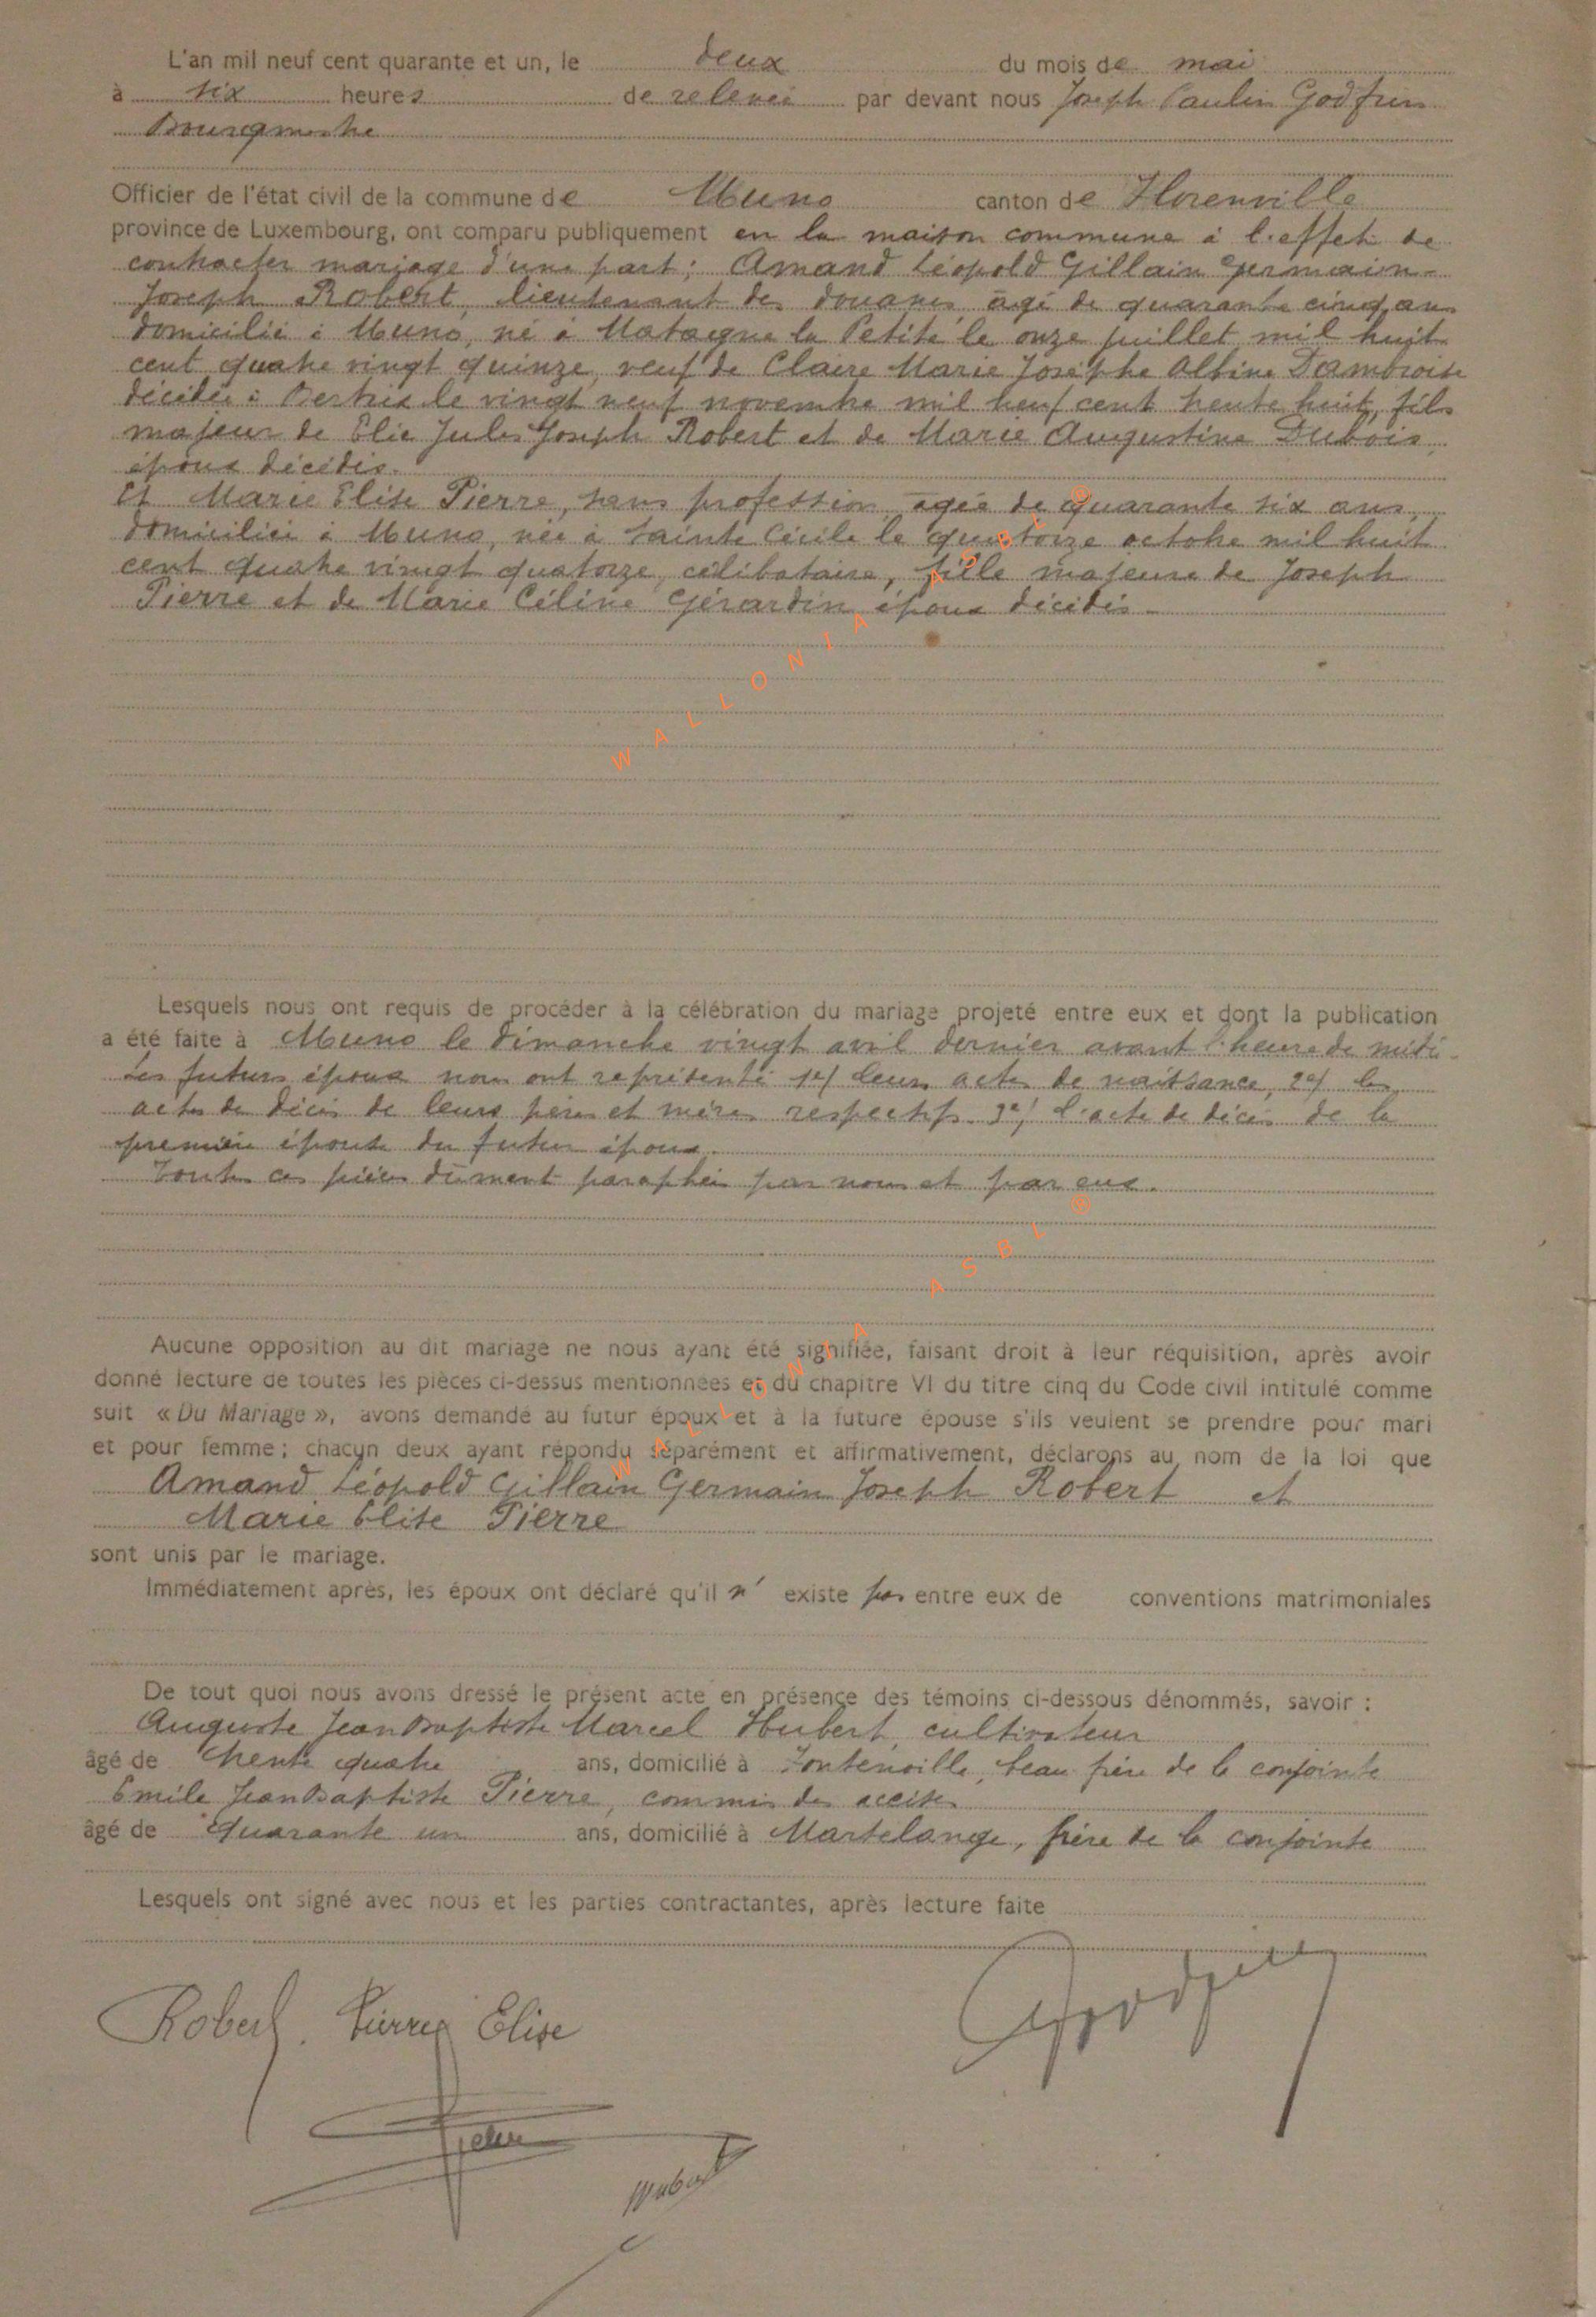 L'an mil neuf cent quarante et un, le deux du mois de mai
à six heures de relevée par devant nous Joseph Paulin Godfrin
Bourgmestre
Officier de l'état civil de la commune de Muno canton de Florenville
province de Luxembourg, ont comparu publiquement en la maison commune à l'effet de
contracter mariage d'une part; Amand Léopold Gillain Germain
Joseph Robert, lieutenant des douanes âgé de quarante cinq ans
domicilié à Muno, né à Matagne la Petite le onze juillet mil huit
cent quatre vingt quinze, veuf de Claire Marie Josèphe Albine Dambroise
décédée à Bertrix le vingt neuf novembre mil neuf cent trente huit, fils
majeur de Elie Jules Joseph Robert et de Marie Augustine Dubois,
époux décédés.
Et Marie Elise Pierre, sans profession âgée de quarante six ans,
domiciliée à Muno, née à Sainte Cécile le quatorze octobre mil huit
cent quatre vingt quatorze, célibataire, fille majeure de Joseph
Pierre et de Marie Céline Gérardin époux décédés.
WALLONIA ASBL ®
Lesquels nous ont requis de procéder à la célébration du mariage projeté entre eux et dont la publication
a été faite à Muno le dimanche vingt avril dernier avant l'heure de midi.
Les futurs époux nous ont représenté 1°/ leurs actes de naissance, 2°/ les
actes de décès de leurs pères et mères respectifs. 3°/ l'acte de décès de la
première épouse du futur époux.
Toutes ces pièces dûment paraphées par nous et par eux.
Aucune opposition au dit mariage ne nous ayant été signifiée, faisant droit à leur réquisition, après avoir
donné lecture de toutes les pièces ci-dessus mentionnées et du chapitre VI du titre cinq du Code civil intitulé comme
suit « Du Mariage », avons demandé au futur époux et à la future épouse s'ils veulent se prendre pour mari
et pour femme; chacun deux ayant répondu séparément et affirmativement, déclarons au nom de la loi que
Amand Léopold Gillain Germain Joseph Robert et
Marie Elise Pierre
sont unis par le mariage.
Immédiatement après, les époux ont déclaré qu'il n' existe pas entre eux de conventions matrimoniales
WALLONIA ASBL ®
De tout quoi nous avons dressé le présent acte en présence des témoins ci-dessous dénommés, savoir :
Auguste Jean Baptiste Marcel Hubert, cultivateur
âgé de trente quatre ans, domicilié à Fontenoille, beau frère de la conjointe
Emile Jean Baptiste Pierre, commis des accises
âgé de quarante un ans, domicilié à Martelange, frère de la conjointe
Lesquels ont signé avec nous et les parties contractantes, après lecture faite
Robert. Pierre Elise
Hubert